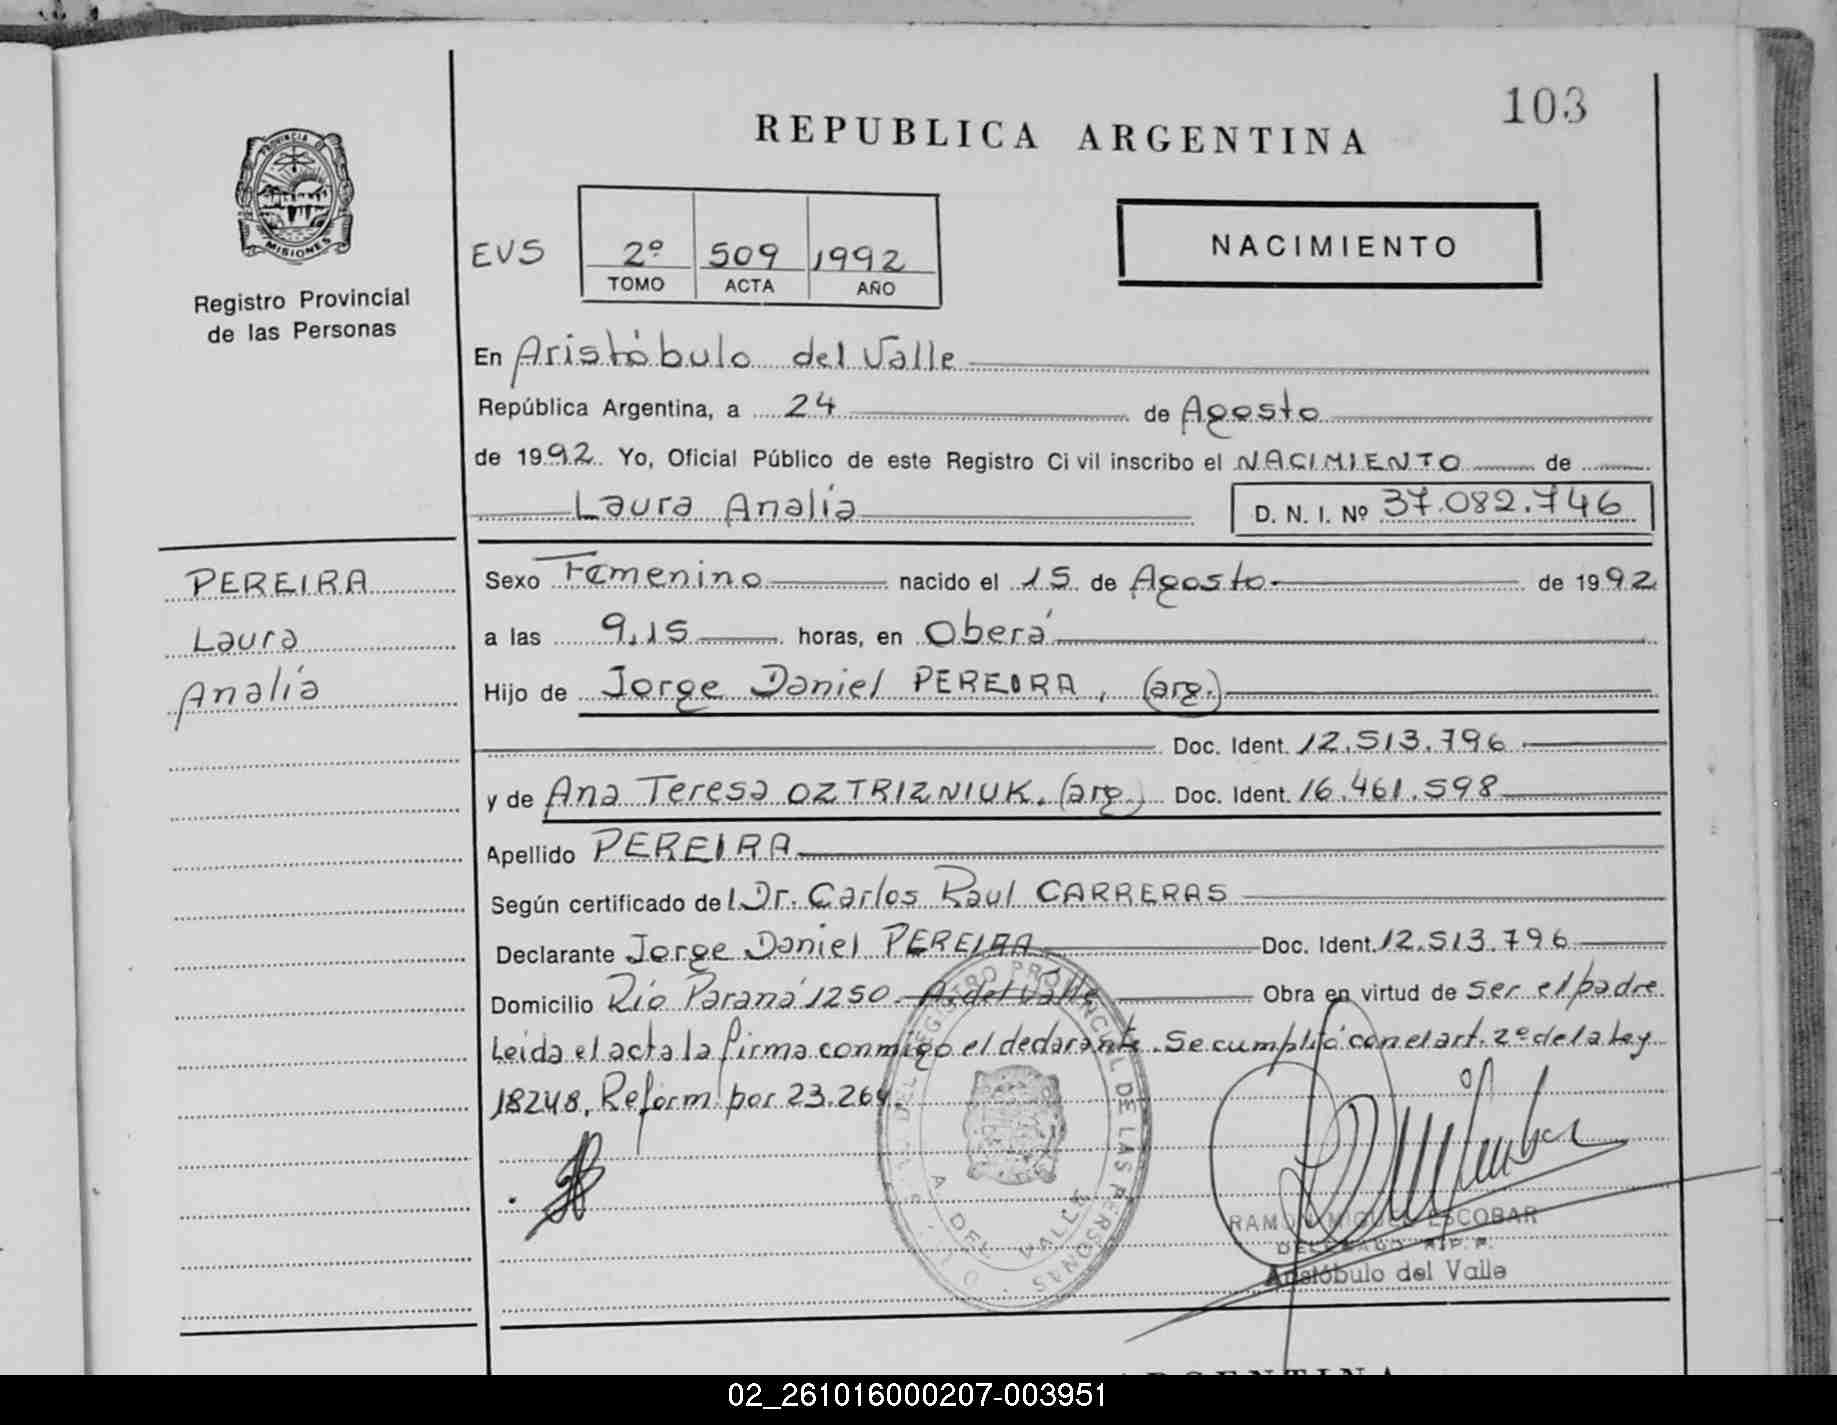 103
REPUBLICA ARGENTINA
PROVINCIA DE
MISIONES
Registro Provincial
de las Personas
EVS
2º 509 1992
TOMO ACTA AÑO
NACIMIENTO
En Aristóbulo del Valle
República Argentina, a 24 de Agosto
de 1992. Yo, Oficial Público de este Registro Civil inscribo el NACIMIENTO de
Laura Analía D. N. I. Nº 37.082.746
PEREIRA
Laura
Analía
Sexo Femenino nacido el 15 de Agosto de 1992
a las 9,15 horas, en Oberá
Hijo de Jorge Daniel PEREIRA, (arg.)
Doc. Ident. 12.513.796
y de Ana Teresa OZTRIZNIUK. (arg.) Doc. Ident. 16.461.598
Apellido PEREIRA
Según certificado del Dr. Carlos Raul CARRERAS
Declarante Jorge Daniel PEREIRA Doc. Ident. 12.513.796
Domicilio Río Paraná 1250. A. del Valle Obra en virtud de ser el padre
Leida el acta la firma conmigo el declarante. Se cumplió con el art. 2º de la Ley
18248, Reform por 23.264.
REGISTRO PROVINCIAL DE LAS PERSONAS
A. DEL VALLE
RAMON MIGUEL ESCOBAR
DELEGADO R.P.P.
Aristóbulo del Valle
02_261016000207-003951